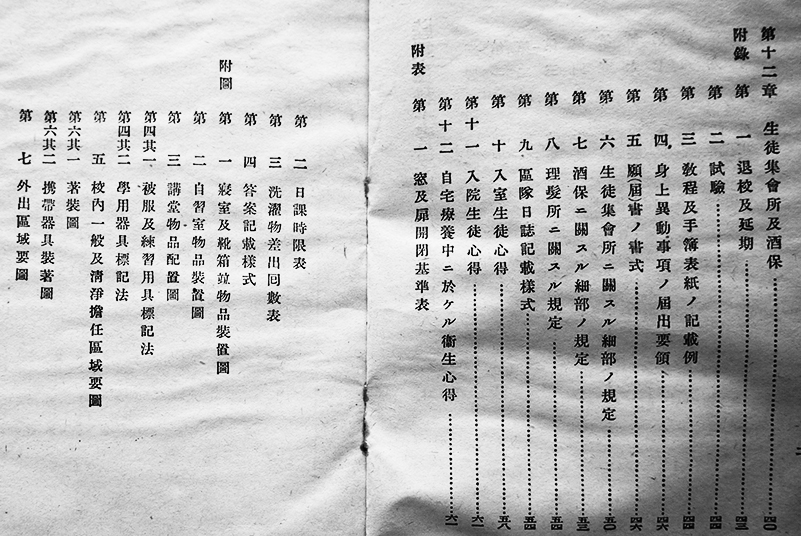 第十二章 生徒集會所及酒保……四〇
附錄
第一 退校及延期……四三
第二 試驗……四四
第三 敎程及手簿表紙ノ記載例……四四
第四 身上異動事項ノ屆出要領……四六
第五 願(屆)書ノ書式……四六
第六 生徒集會所ニ關スル細部ノ規定……五〇
第七 酒保ニ關スル細部ノ規定……五三
第八 理髮所ニ關スル規定……五四
第九 區隊日誌記載樣式……五四
第十 入室生徒心得……五八
第十一 入院生徒心得……六一
第十二 自宅療養中ニ於ケル衞生心得……六一
附表
第一 窓及扉開閉基準表
第二 日課時限表
第三 洗濯物差出回數表
第四 答案記載樣式
附圖
第一 寢室及靴箱竝物品裝置圖
第二 自習室物品裝置圖
第三 講堂物品配置圖
第四其一 被服及練習用具標記法
第四其二 學用器具標記法
第五 校內一般及淸淨擔任區域要圖
第六其一 著裝圖
第六其二 携帶器具裝著圖
第七 外出區域要圖